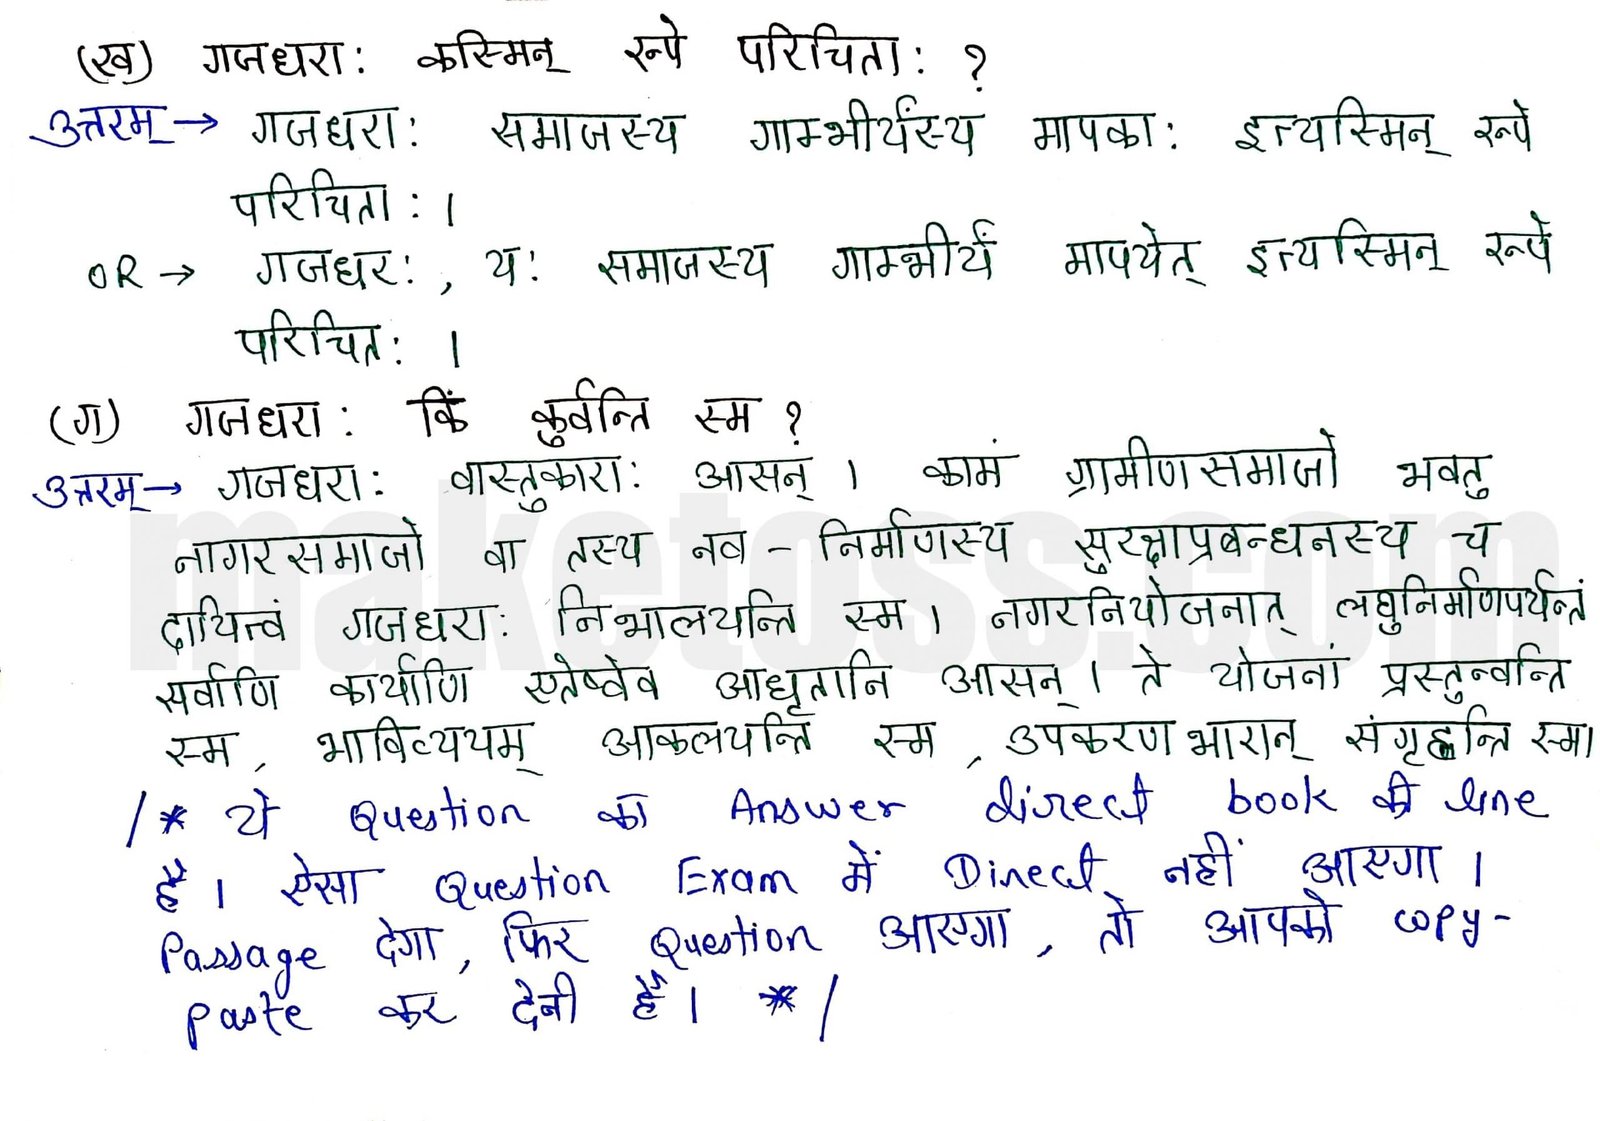 (ख) गजधरा: कस्मिन् रूपे परिचिता: ?
उत्तरम् → गजधरा: समाजस्य गाम्भीर्यस्य मापका: इत्यस्मिन् रूपे
परिचिता: ।
OR → गजधर:, य: समाजस्य गाम्भीर्यं मापयेत् इत्यस्मिन् रूपे
परिचित: ।
(ग) गजधरा: किं कुर्वन्ति स्म ?
उत्तरम् → गजधरा: वास्तुकारा: आसन् । कामं ग्रामीणसमाजो भवतु
नागरसमाजो वा तस्य नव - निर्माणस्य सुरक्षाप्रबन्धनस्य च
दायित्वं गजधरा: निभालयन्ति स्म । नगरनियोजनात् लघुनिर्माणपर्यन्तं
सर्वाणि कार्याणि एतेष्वेव आधृतानि आसन् । ते योजनां प्रस्तुन्वन्ति
स्म , भाविव्ययम् आकलयन्ति स्म , उपकरणभारान् संगृह्णन्ति स्म।
/* ये Question का Answer direct book की line
है । ऐसा Question Exam में Direct नहीं आएगा ।
Passage देगा , फिर Question आएगा , तो आपको copy-
paste कर देनी है । */
maketoss.com